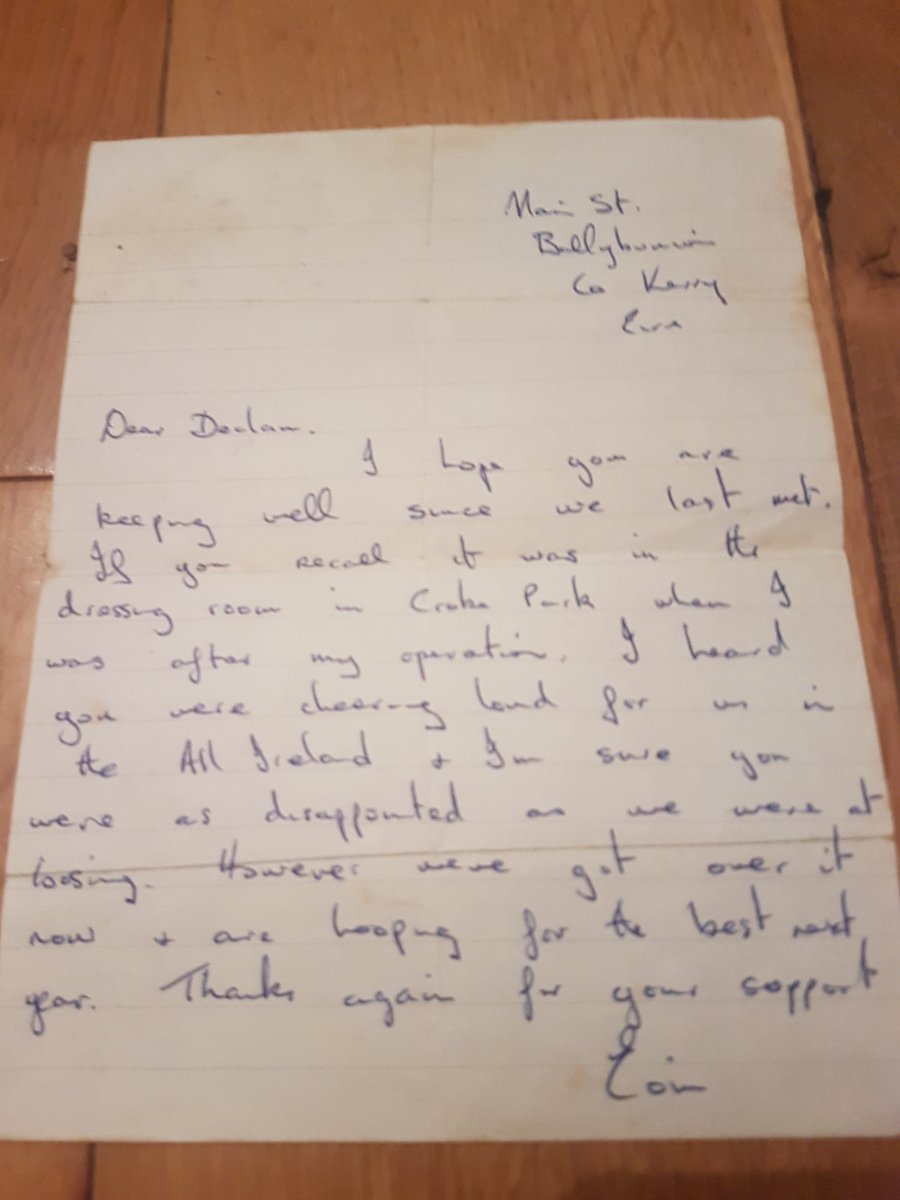 Main St.
Ballybunion
Co Kerry
Eire
Dear Declan.
I hope you are
keeping well since we last met.
If you recall it was in the
dressing room in Croke Park when I
was after my operation. I heard
you were cheering loud for us in
the All Ireland & I'm sure you
were as disappointed as we were at
loosing. However weve got over it
now & are hooping for the best next
year. Thanks again for your support
Eoin